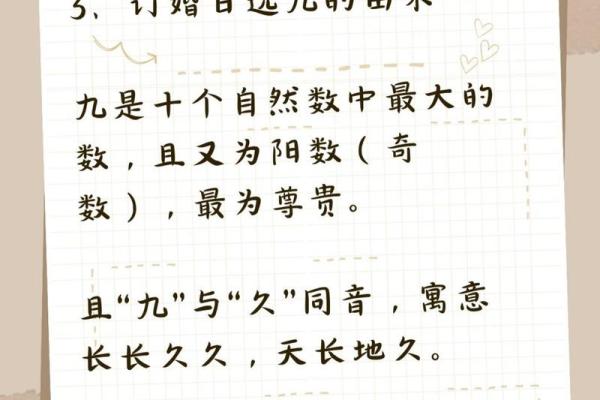 3、订婚日选九的由来
九是十个自然数中最大的
数，且又为阳数（奇
数），最为尊贵。
且“九”与“久”同音，寓意
长长久久，天长地久。